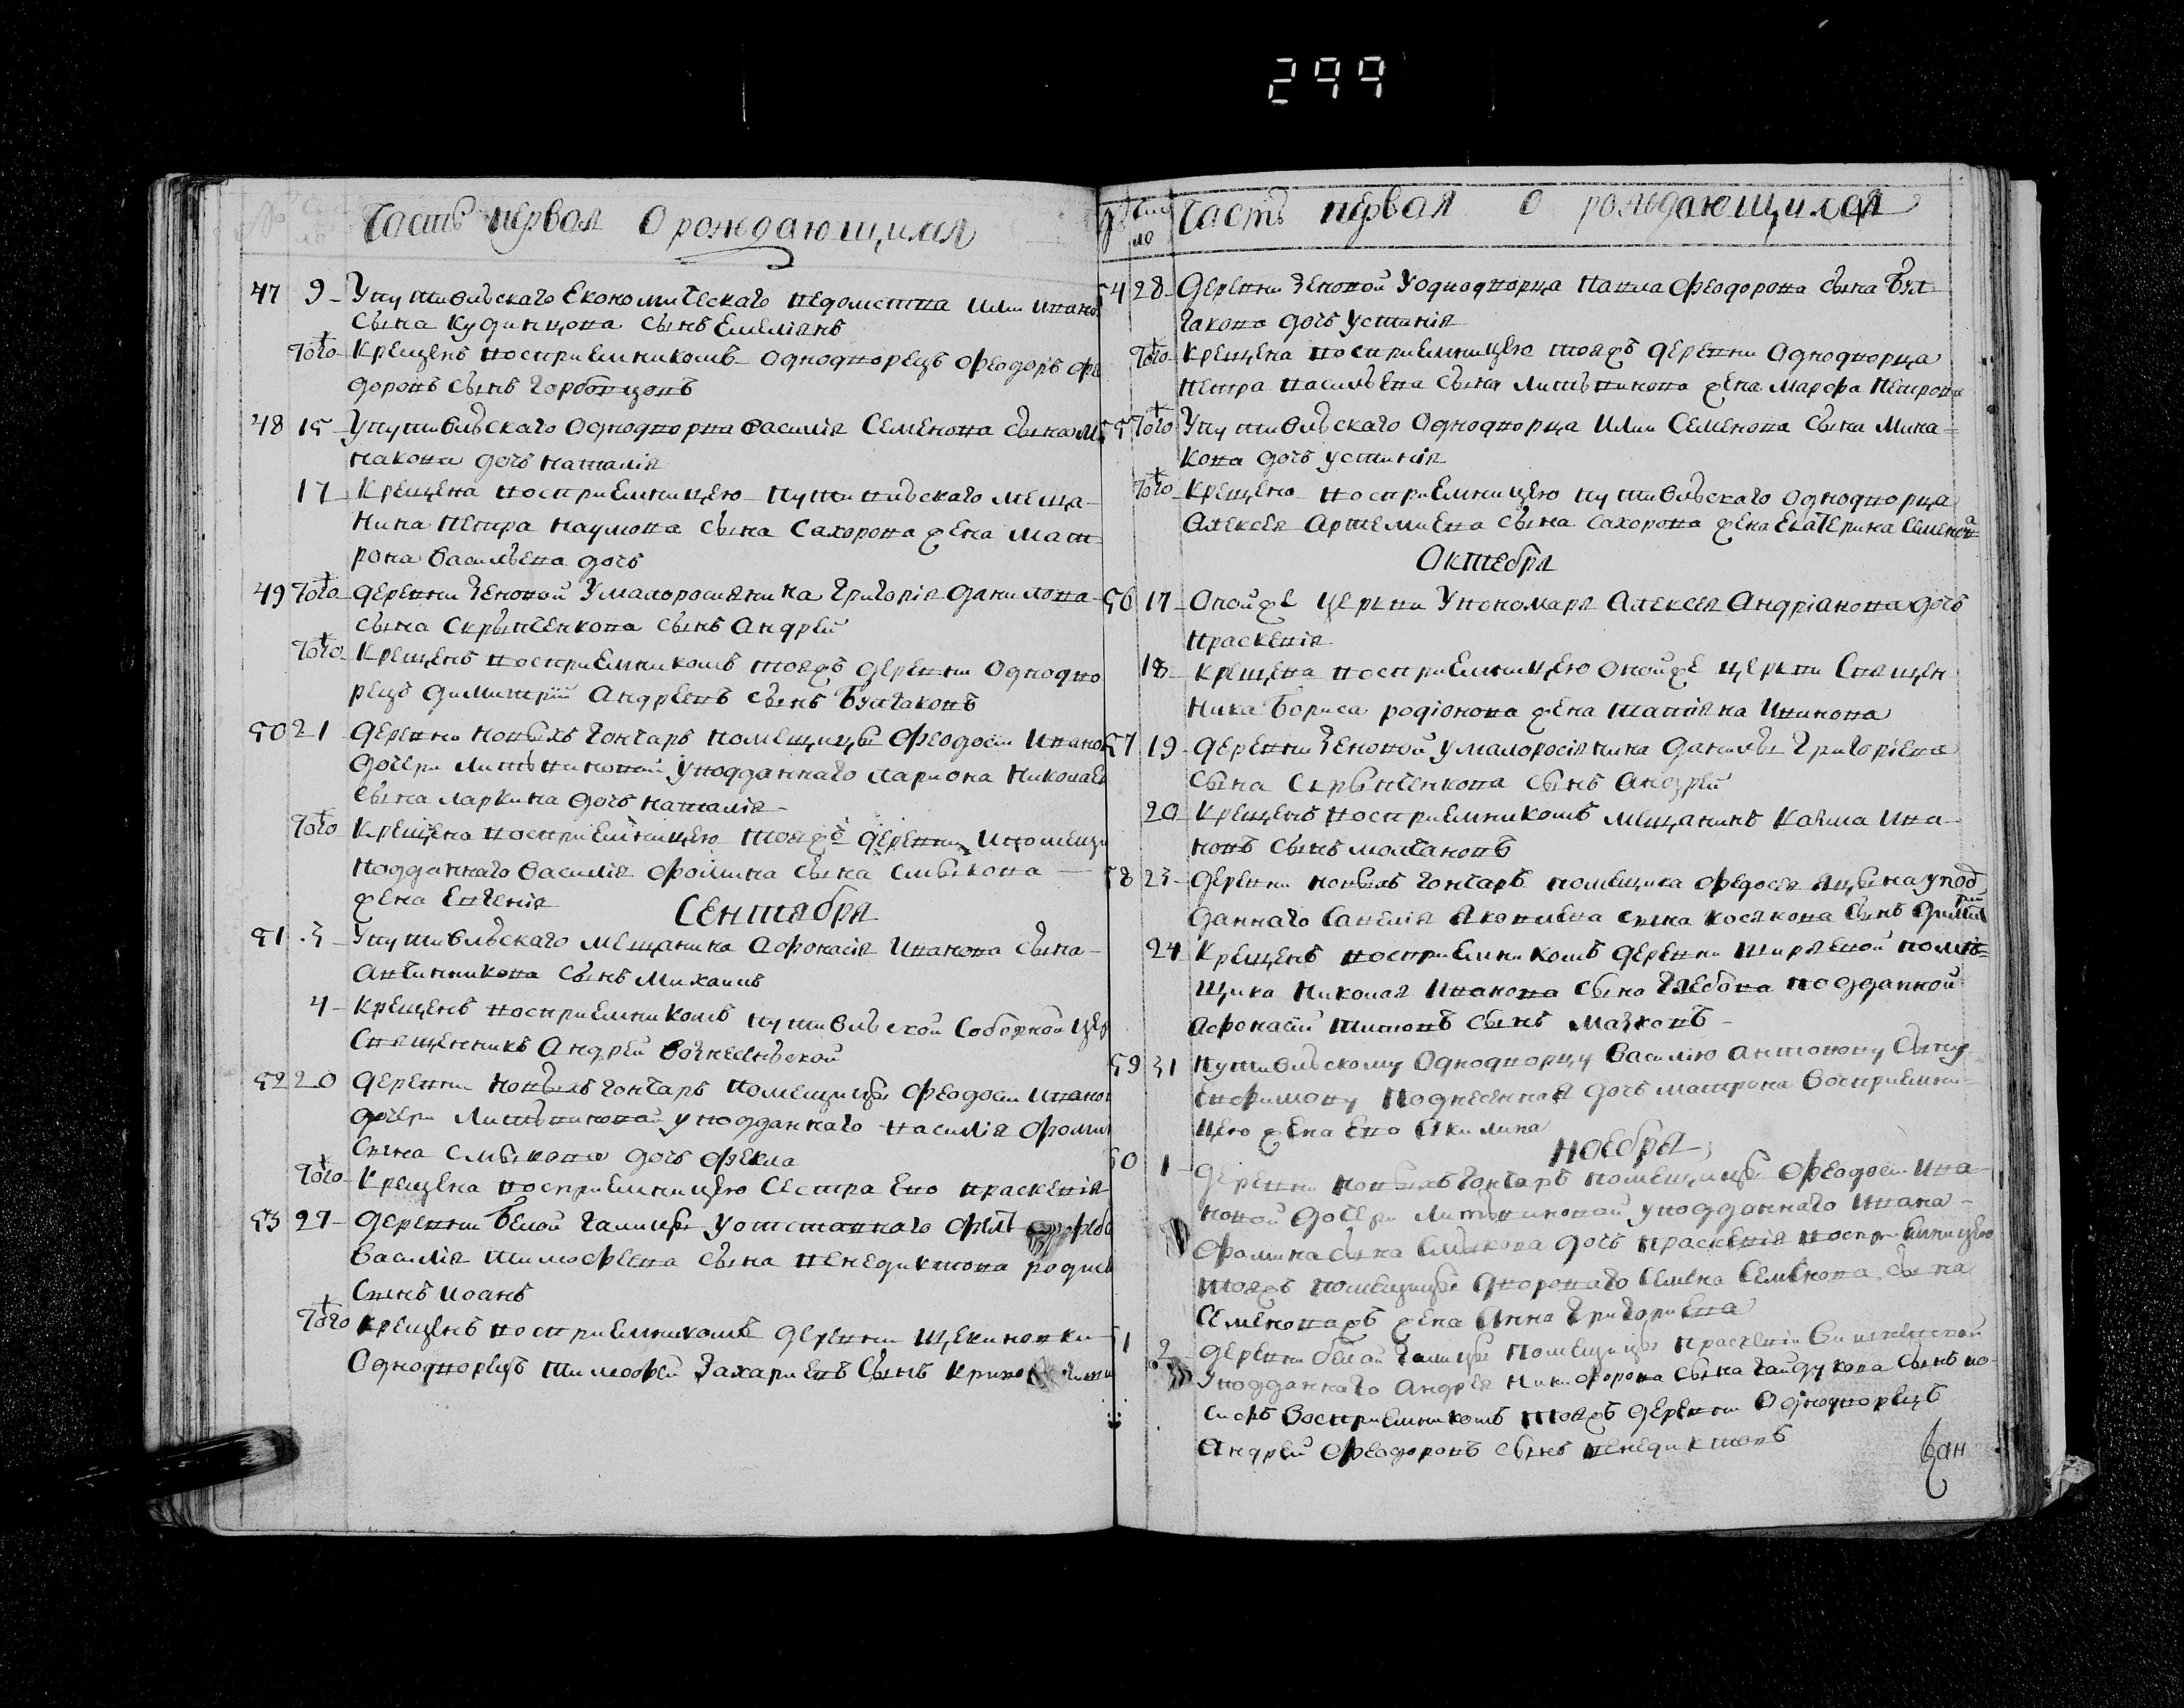 299
Часть первая О рождающихся
47 9 Упутивльскаго Економическаго ведомства Илии Ивано
сына Кудинцова сынъ Емелiянъ
Того Крещенъ восприемникомъ Однодворецъ Феодоръ Фе
доровъ сынъ Горбовцовъ
48 15 Упутивльскаго Однодворца Василiя Семенова сына Ми
накова дочь Наталiя
17 Крещена восприемницею путивльскаго меща
нина Петра Наумова сына Сахорова жена Мат
рона Васильева дочь
49 Того деревни Зеновой Умалоросиянина Григорiя Данилова
сына Скрыпченкова сынъ Андрей
Того Крещенъ восприемникомъ тояжъ деревни Одноднo
рецъ Димитрiй Андреевъ сынъ Булгаковъ
50 21 Деревни новыхъ Гончаръ помещицы Феодоси Ивано
дочери Литвиновой уподданнаго Лариона Николаев
сына Ларкина дочь Наталiя
Того Крещена восприемницею тояжъ деревни
подданнаго Василiя Фомина сына Смыкова
жена Евгенiя
Сентября
51 3 Упутивльскаго мещанина Афонасiя Иванова сына
сынъ Михаилъ
4 Крещенъ восприемникомъ путивльской Соборной Цер
Священникъ Андрей Вознесеньской
52 20 Деревни Новыхъ Гончаръ помещицы Феодоси Ивано
дочери Литвиновой уподданнаго Василiя Фомин
сына Смыкова дочь Фекла
Того Крещена восприемницею Сестра Ево Праскевiя
53 27 Деревни Белой Галицы уотставнаго
Василiя Тимофеева сына Венедиктова родился
Сынъ Иоанъ
Того Крещенъ восприемникомъ деревни Щекиновки
Однодворецъ Тимофей Захариевъ Сынъ
№ Чис ло Часть первая О рождающихся
54 28 Деревни Зеновой Уоднодворца Павла Феодорова сына Бул
гакова дочь Устинiя
Того Крещена восприемницею тояжъ деревни Однодворца
Петра Васильева сына Литвинова жена Марфа Петрова
55 Того Упутивльскаго Однодворца Илии Семенова Сына Мина=
кова дочь Устинiя
Того Крещено восприемницею путивльскаго Однодворца
Алексея Артемиева сына Сахорова жена Екатерина Семенов
Октебря
56 17 Онойже Церкви Упономаря Алексея Андрiанова дочь
Праскевiя
18 Крещена восприемницею Онойже церкви Священ
ника Бориса Родiонова жена Татiяна Иванова
57 19 Деревни Зеновой умалоросiянина Данилы Григорiева
сына Скрыпченкова сынъ Андрей
20 Крещенъ восприемникомъ мещанинъ Козма Ива
новъ сынъ Молчановъ
58 23 Деревни новыхъ Гончаръ помещика Федосея Яцына упод
даннаго Савелiя Яковлева сына Косякова сынъ Димит
рий
24 Крещенъ восприемникомъ деревни Ширяевой поме=
щика Николая Иванова сына Глебова подданной
Афонасiй Титовъ сынъ
59 31 Путивльскому Однодворцу Василiю Антонову сыну
Ефимову Поднесенная дочь Матрона Восприемни
цею жена Ево Акилина
Ноебря
60 1 Деревни новыхъ Гончаръ помещицы Феодоси Ива
новой дочери Литвиновой уподданнаго Ивана
Фомина сына Смыкова дочь Праскевiя восприемницею
тояжъ помещицы дворонаго Семена Семенова сына
жена Анна Григориева
61 2 Деревни белой Галицы помещицы Праскевiи
Уподданнаго Андрея Никифорова сына Гайдукова сынъ Ио
сифъ Восприемникомъ тояжъ деревни Однодворецъ
Андрей Феодоровъ сынъ Венедиктовъ